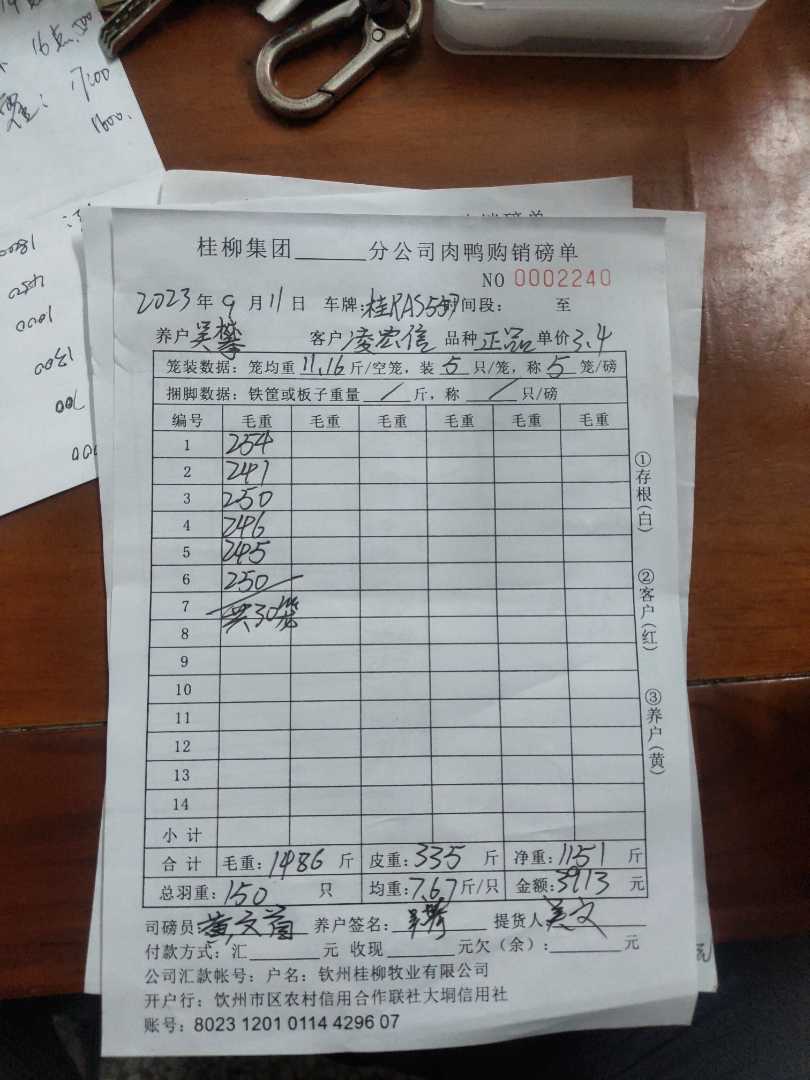 16点
17:00
1600.
桂柳集团______分公司肉鸭购销磅单
NO 0002240
2023年9月11日 车牌:桂RAS557时间段: 至
养户吴攀 客户凌宏信 品种正品单价3.4
笼装数据: 笼均重11.16斤/空笼, 装5只/笼, 称5笼/磅
捆脚数据: 铁筐或板子重量 / 斤, 称 / 只/磅
编号 毛重 毛重 毛重 毛重 毛重 毛重
1 254
2 241
3 250
4 246
5 245
6 250
7 共30笼
8
9
10
11
12
13
14
小 计
合 计 毛重:1486斤 皮重:335斤 净重:1151斤
总羽重:150只 均重:7.67斤/只 金额:3913元
司磅员: 养户签名: 吴攀 提货人
付款方式: 汇______元 收现______元欠(余):______元
公司汇款帐号: 户名: 钦州桂柳牧业有限公司
开户行: 钦州市区农村信用合作联社大垌信用社
账号: 8023 1201 0114 4296 07
①存根(白)
②客户(红)
③养户(黄)